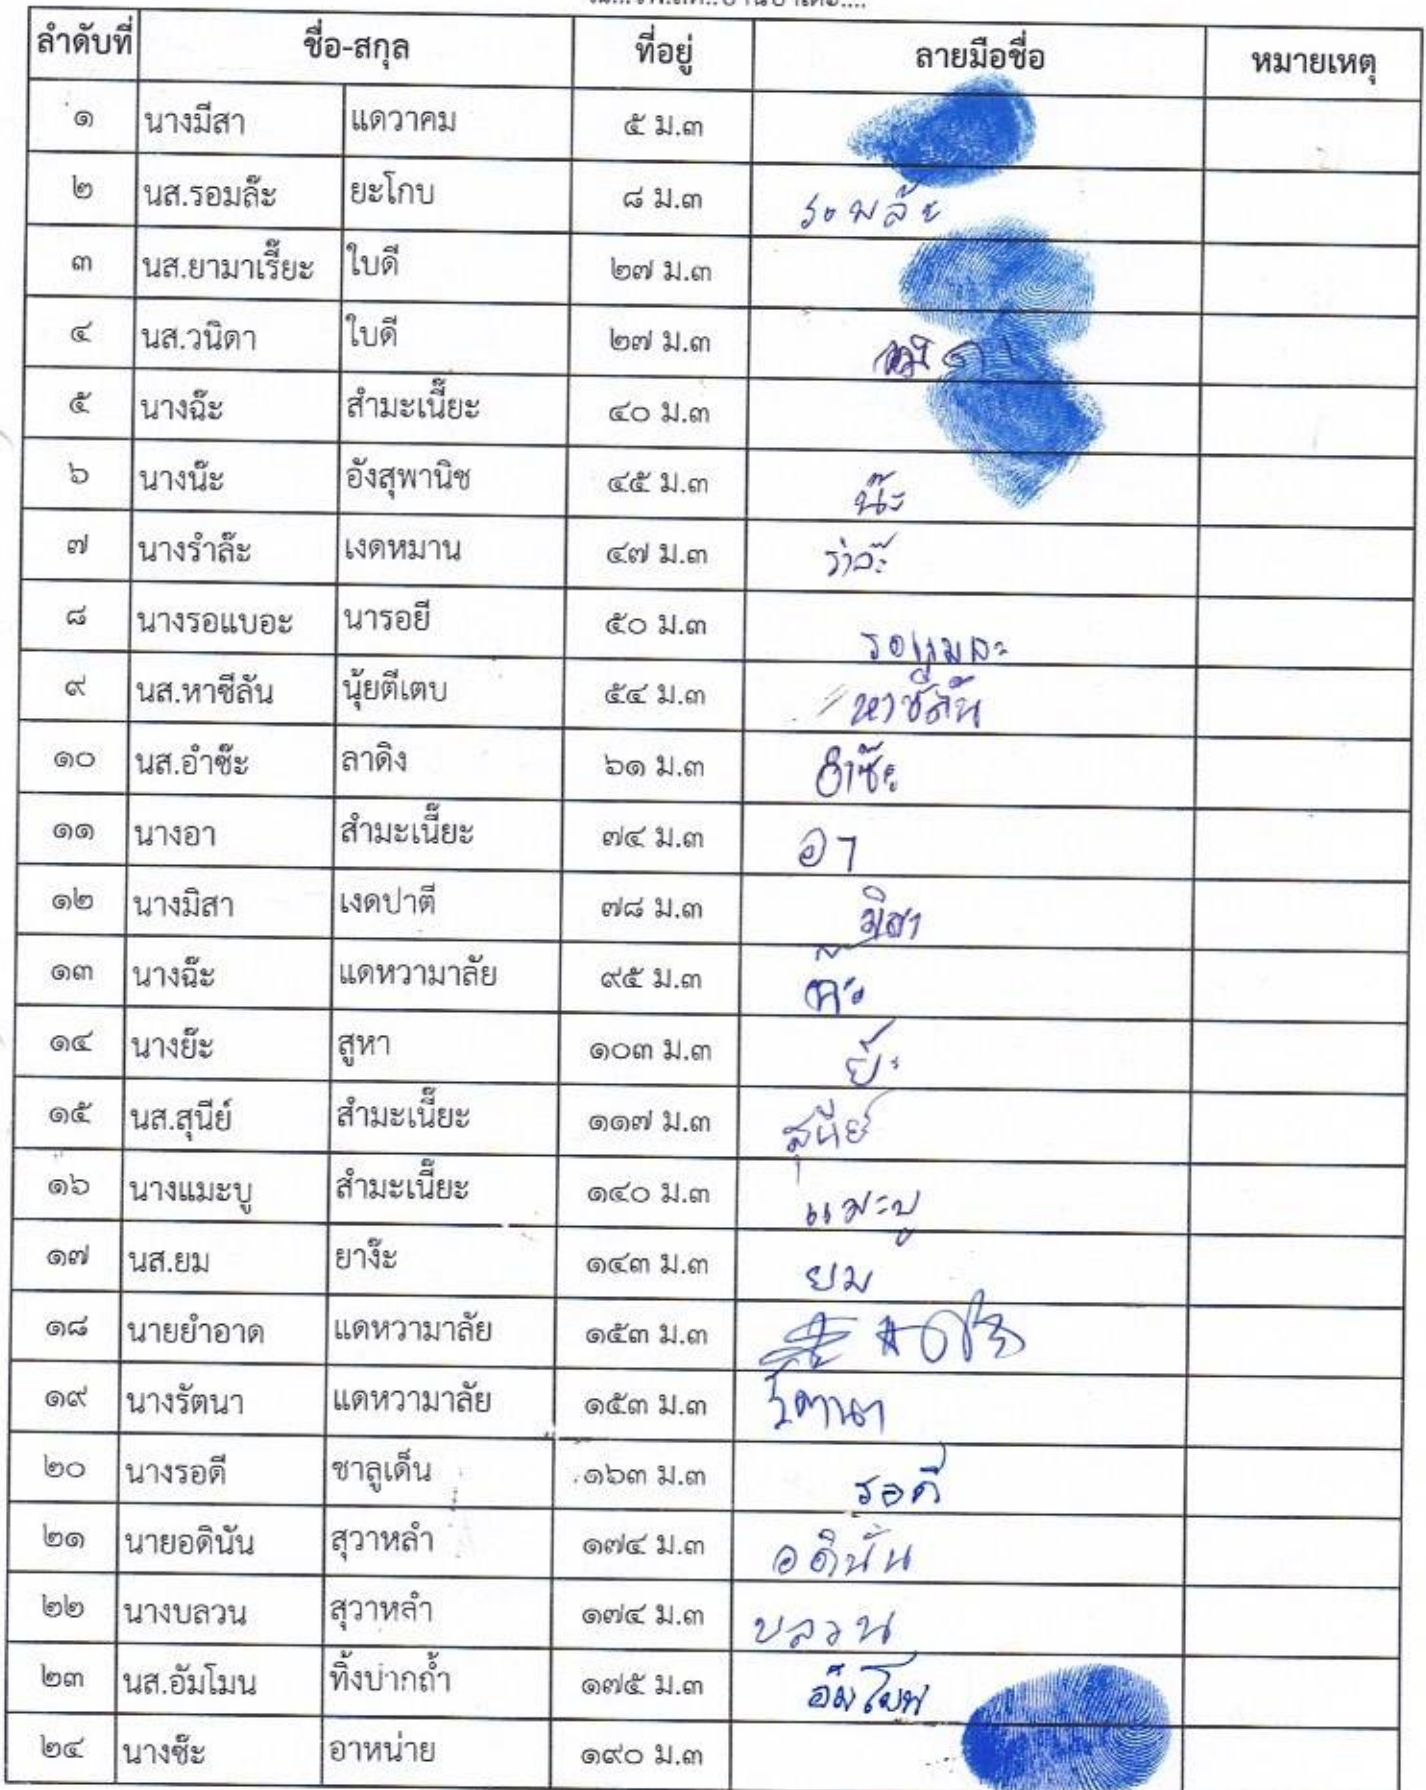 ลำดับที่ ชื่อ-สกุล ที่อยู่ ลายมือชื่อ หมายเหตุ
๑ นางมีสา แดวาคม ๕ ม.๓
๒ นส.รอมล๊ะ ยะโกบ ๘ ม.๓ รอมล๊ะ
๓ นส.ยามาเรี๊ยะ ใบดี ๒๗ ม.๓
๔ นส.วนิดา ใบดี ๒๗ ม.๓ วนิดา
๕ นางฉ๊ะ สำมะเนี๊ยะ ๔๐ ม.๓
๖ นางน๊ะ อังสุพานิช ๔๕ ม.๓ น๊ะ
๗ นางรำล๊ะ เงดหมาน ๔๗ ม.๓ รำล๊ะ
๘ นางรอแบอะ นารอยี ๕๐ ม.๓
๙ นส.หาซีลัน นุ้ยตีเตบ ๕๔ ม.๓ หาซีลัน
๑๐ นส.อำซ๊ะ ลาดิง ๖๑ ม.๓ อำซ๊ะ
๑๑ นางอา สำมะเนี๊ยะ ๗๔ ม.๓ อา
๑๒ นางมิสา เงดปาตี ๗๘ ม.๓ มิสา
๑๓ นางฉ๊ะ แดหวามาลัย ๙๕ ม.๓
๑๔ นางย๊ะ สูหา ๑๐๓ ม.๓ ย๊ะ
๑๕ นส.สุนีย์ สำมะเนี๊ยะ ๑๑๗ ม.๓ สุนีย์
๑๖ นางแมะบู สำมะเนี๊ยะ ๑๔๐ ม.๓ แมะบู
๑๗ นส.ยม ยาง๊ะ ๑๔๓ ม.๓ ยม
๑๘ นายยำอาด แดหวามาลัย ๑๕๓ ม.๓
๑๙ นางรัตนา แดหวามาลัย ๑๕๓ ม.๓
๒๐ นางรอดี ชาลูเด็น ๑๖๓ ม.๓ รอดี
๒๑ นายอดินัน สุวาหลำ ๑๗๔ ม.๓ อดินัน
๒๒ นางบลวน สุวาหลำ ๑๗๔ ม.๓ บลวน
๒๓ นส.อัมโมน ทิ้งบ่ากถ้ำ ๑๗๕ ม.๓ อัมโมน
๒๔ นางซ๊ะ อาหน่าย ๑๙๐ ม.๓